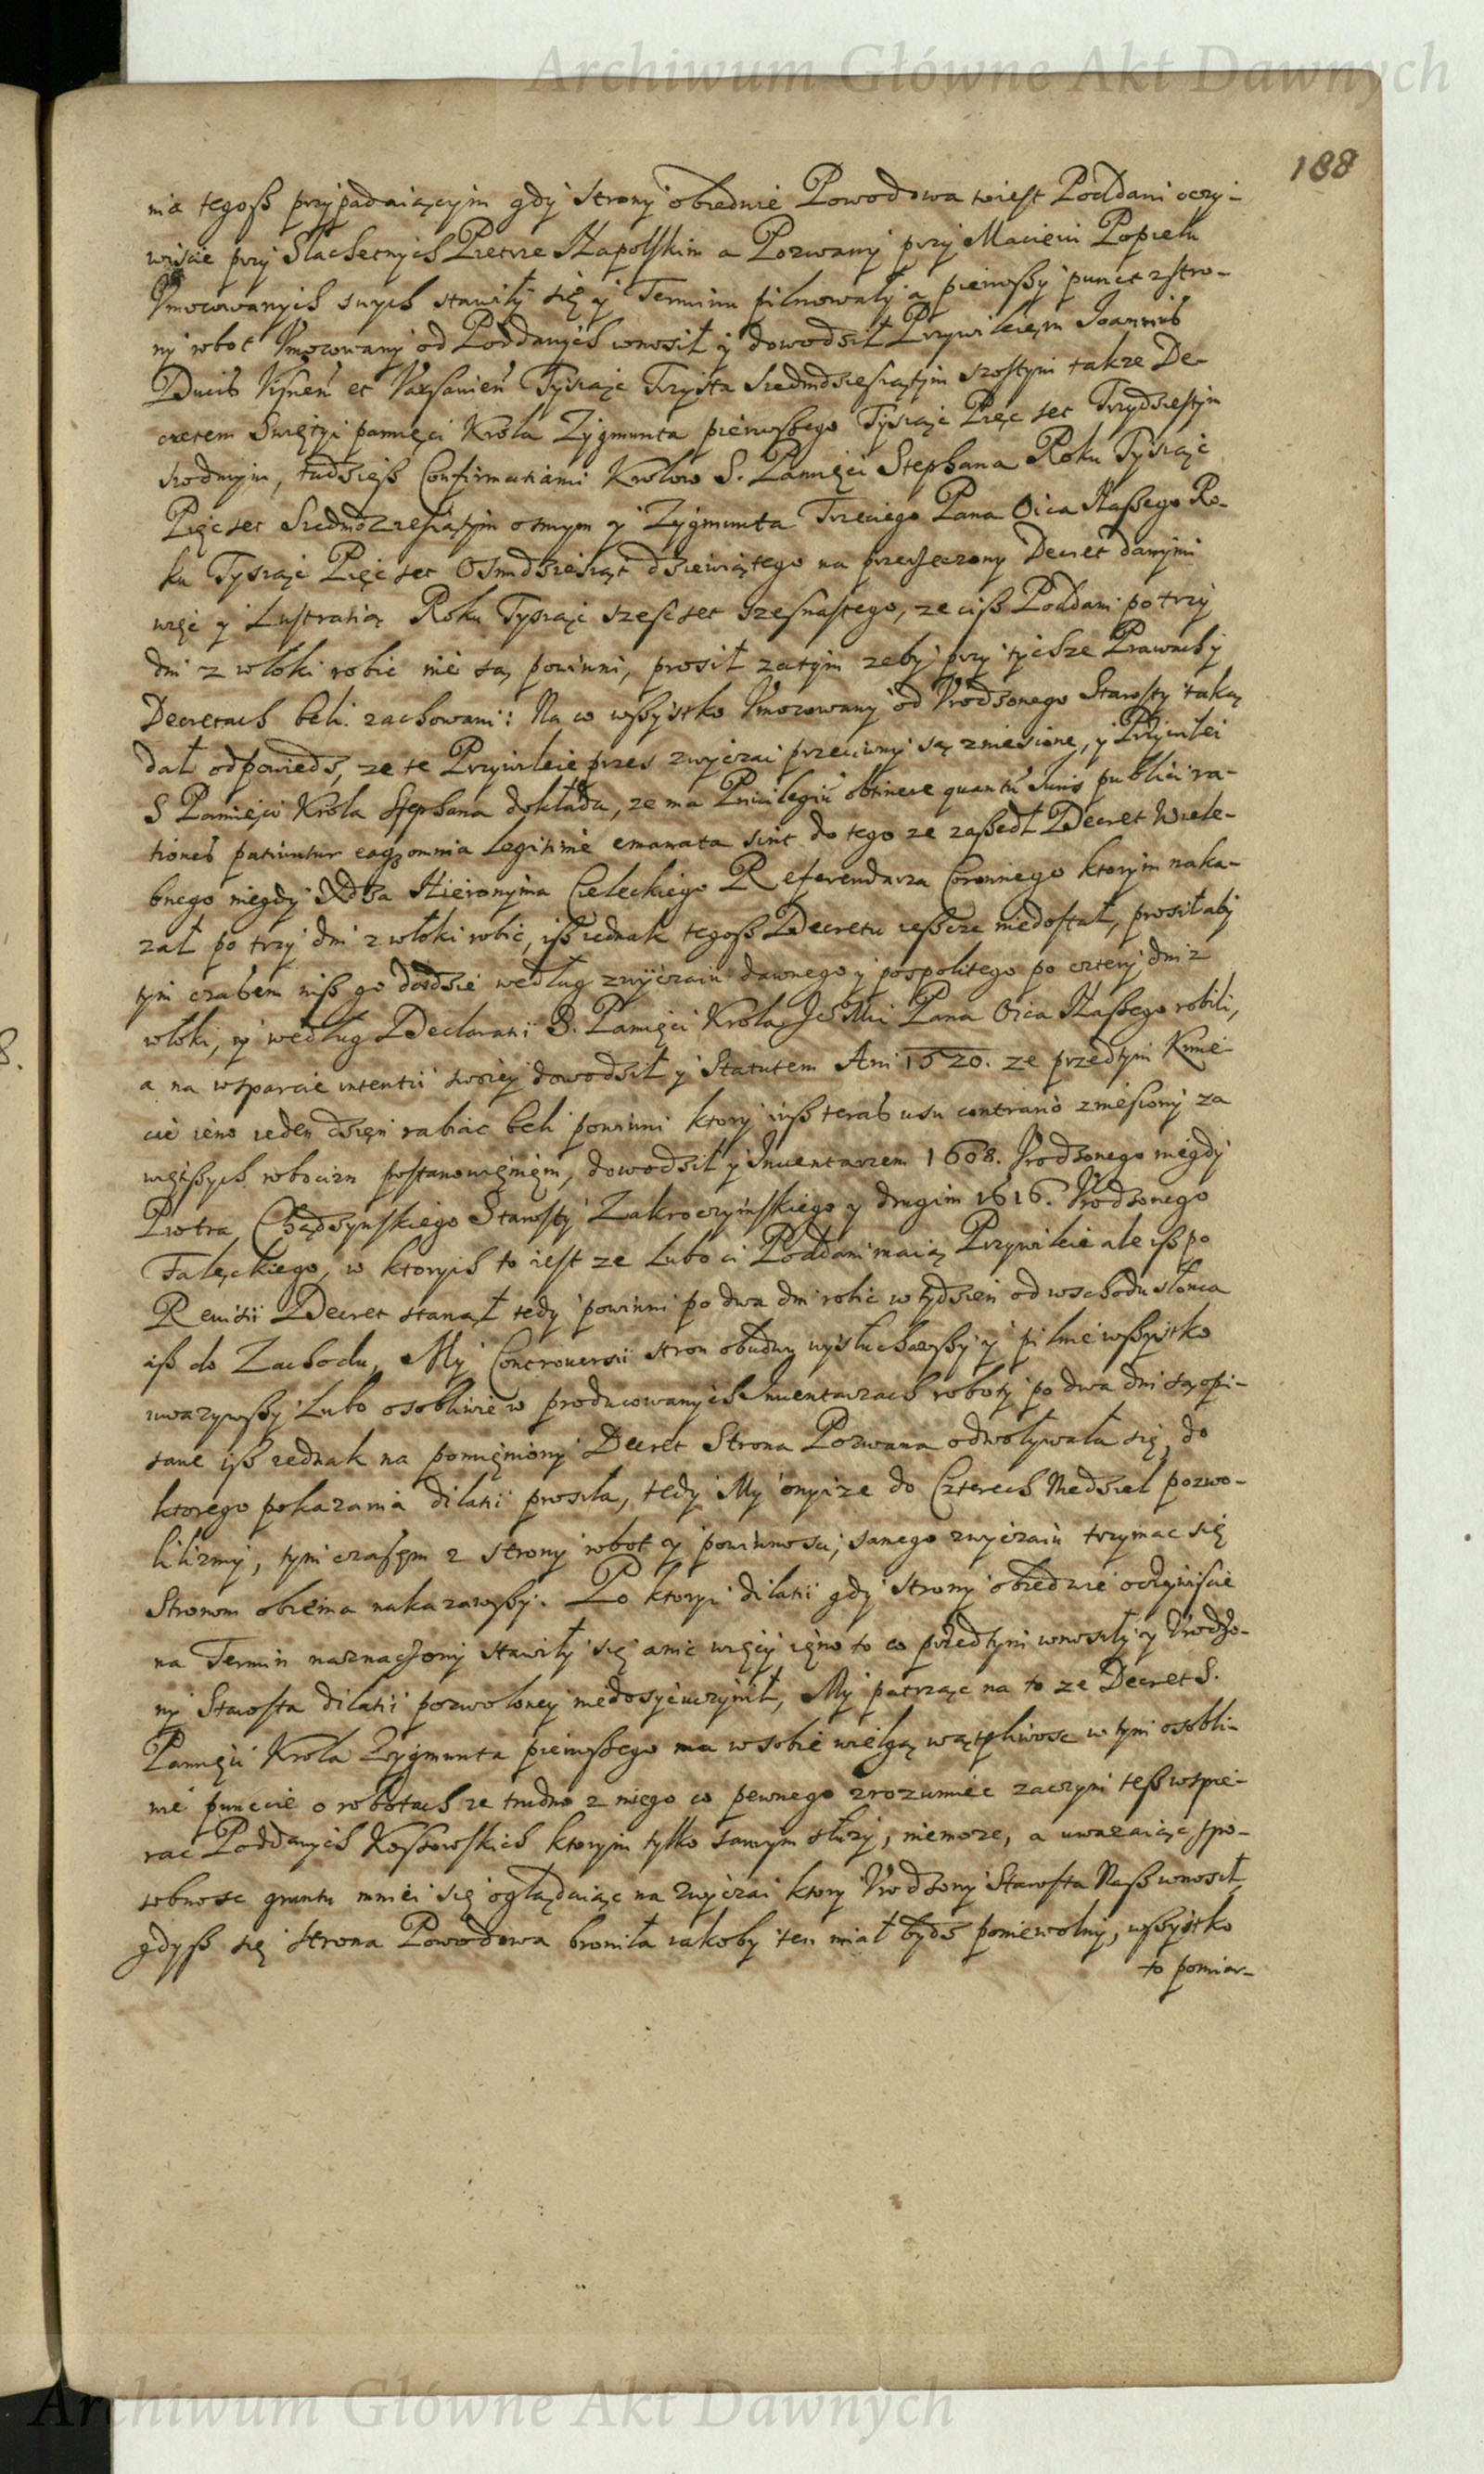 Archiwum Główne Akt Dawnych
188
nia tegosz przypadaiącym gdy strony obiedwie Powodowa to iest Poddani oczy-
wiście przy Slachetnych Pietrze Napolskim a Pozwany przy Macieiu Popielu
Vmocowanych swych stawiły się y Terminu pilnowały a pierwszy punct z stro-
ny robot Vmocowany od Poddanych wnosił y dowodził Przywileięm Joannis
Ducis Visnen et Varsavien Tysiąc Trzysta Siedmdziesiątym szostym takze De-
cretem Swiętyi pamięci Krola Zygmunta pierwszego Tysiąc Pięc set Trzydziestym
siodmym, tudziesz Confirmatiami Krolow S. Pamięci Stephana Roku Tysiąc
Pięc set Siedmdziesiątym osmym y Zygmunta Trzeciego Pana Oica Naszego Ro-
ku Tysiąc Pięc set Osmdziesiąt dziewiątego na przerzeczony Decret danymi
więc y Lustratią Roku Tysiąc szesc set szesnastego, ze cisz Poddani po trzy
dni z wloki robic nie są powinni, prosił zatym zeby przy tychze Prawach y
Decretach beli zachowani: Na co wszystko Vmocowany od Vrodzonego Starosty taką
dał odpowiedz, ze te Przywileie przes zwyczai przeciwny są zniesione, y Przywilei
S Pamięci Krola Stephana dokłada, ze ma Privilegiu obtinere quantu Juris publici ra-
tiones patiuntur eaqz omnia legitime emanata sint do tego ze zaszedł Decret Wiele-
bnego niegdy Xdza Hieronyma Cieleckiego Referendarza Coronnego ktorym naka-
zał po trzy dni z włoki robic, isz iednak tegosz Decretu ieszcze niedostał, prosił aby
tym czasem nisz go doidzie według zwyczaiu dawnego y pospolitego po cztery dni z
wloki, y według Declaratii S. Pamięci Krola Je Mci Pana Oica Naszego robili,
a na wsparcie intentii swoiey dowodził y Statutem Ani 1520. ze przedtym Kmie-
cie ieno ieden dzięn rabiac beli powinni ktory iusz teras usu contrario zniesiony za
więtszych robocizn postanowięnięm, dowodził y Inuentarzem 1608. Vrodzonego niegdy
Piotra Chądzynskiego Starosty Zakroczymskiego y drugim 1616. Vrodzonego
Falęckiego, w ktorych to iest ze lubo ci Poddani maią Przywileie ale isz po
Reuisii Decret stanął tedy powinni po dwa dni robic w tydzien od wschodu słonca
isz do Zachodu, My Controuersii stron obudwu wysłuchawszy y pilnie wszystko
uwazywszy lubo osobliwie w producowanych Inuentarzach roboty po dwa dni są opi-
sane isz iednak na pomięniony Decret Strona Pozwana odwoływała się, do
ktorego pokazania dilatii prosiła, tedy My onyize do Czterech Niedziel pozwo-
lilizmy, tym czasęm z strony robot y powinnosci, samego zwyczaiu trzymac się
Stronom obiema nakazawszy. Po ktoryi dilatii gdy strony obiedwie oczywiscie
na Termin naznaczony stawiły się a nic więcy ięno to co przedtym wnosiły y Vrodzo-
ny Starosta dilatii pozwoloney niedosycuczynił, My patrząc na to ze Decret S.
Pamięci Krola Zygmunta pierwszego ma w sobie wielgą wątpliwosc w tym osobli-
wie puncie o robotach ze trudno z niego co pewnego zrozumiec zaczym tesz wspie-
rac Poddanych Kossowskich ktorym tylko samym służy, niemoze, a uwazaiąc spo-
sobnosc gruntu mniei się oglądaiąc na zwyczai ktory Vrodzony Starosta Nasz wnosił,
gdysz się strona Powodowa broniła iakoby ten miał bydz poniewolny, wszystko
to pomiar-
Archiwum Główne Akt Dawnych